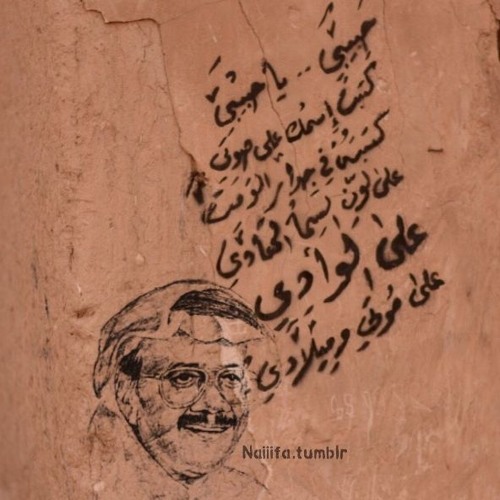 حبيبتي .. يا حبيبتي
كتبت إسمك على صوتي
كتبته في جدار الوقت
على لون السما الهادي
على الوادي
على موتي وميلادي
Naiiifa.tumblr